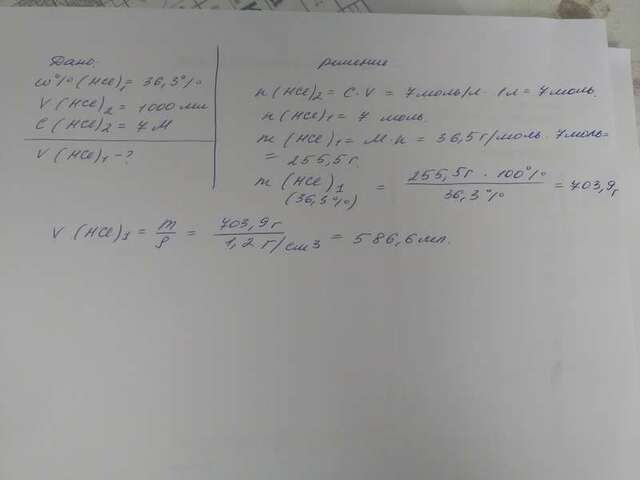 Дано:
ω% (HCl)₁ = 36,3%
V (HCl)₂ = 1000 мл
C (HCl)₂ = 7 М
V (HCl)₁ - ?
решение
n (HCl)₂ = C · V = 7 моль/л · 1л = 7 моль.
n (HCl)₁ = 7 моль.
m (HCl)₁ = M · n = 36,5 г/моль · 7 моль =
= 255,5 г.
m (HCl)₁ (36,3%) = 255,5 г · 100% / 36,3% = 703,9 г
V (HCl)₁ = m / ρ = 703,9 г / 1,2 г/см3 = 586,6 мл.